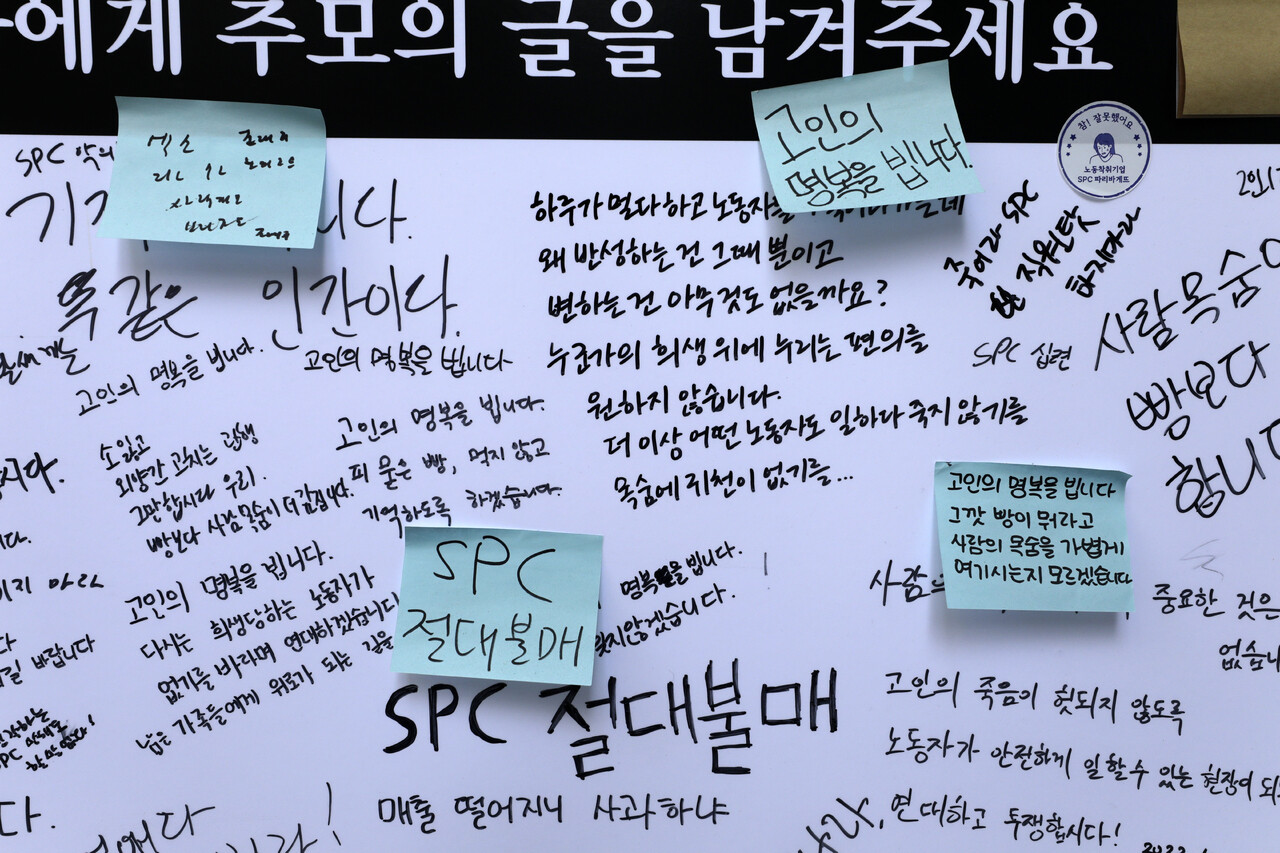 에게 추모의 글을 남겨주세요
고인의
명복을 빕니다.
참! 잘못했어요
노동착취기업
SPC 파리바게뜨
SPC 악의
니다.
똑같은 인간이다.
고인의 명복을 빕니다.
고인의 명복을 빕니다
하루가 멀다하고 노동자를
왜 반성하는 건 그때 뿐이고
변하는 건 아무것도 없을까요?
누군가의 희생 위에 누리는 편의를
원하지 않습니다.
더 이상 어떤 노동자도 일하다 죽지 않기를
목숨에 귀천이 없기를...
SPC
직원탓
하지마라
SPC 십련
사람목숨이
빵보다
합니다
소잃고
외양간 고치는 관행
그만합시다 우리.
빵보다 사람목숨이 더 값집니다.
고인의 명복을 빕니다.
피 묻은 빵, 먹지 않고
기억하도록 하겠습니다.
고인의 명복을 빕니다
그깟 빵이 뭐라고
사람의 목숨을 가볍게
여기시는지 모르겠습니다
고인의 명복을 빕니다.
다시는 희생당하는 노동자가
없기를 바라며 연대하겠습니다
남은 가족들에게 위로가 되는 길을
SPC
절대불매
명복을 빕니다.
잊지않겠습니다.
사람
중요한 것은
없습니
이지 마라
길 바랍니다
SPC 절대불매
매출 떨어지니 사과하냐
고인의 죽음이 헛되지 않도록
노동자가 안전하게 일할 수 있는 현장이 되
연대하고 투쟁합시다!